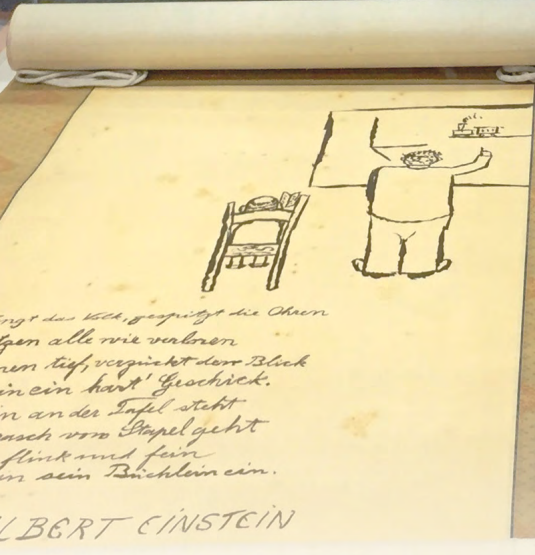 das Volk, gespitzt die Ohren
alle wie verloren
tief, verzückt den Blick
ein hart' Geschick.
an der Tafel steht
vom Stapel geht
flink und fein
sein Büchlein ein.
LBERT EINSTEIN